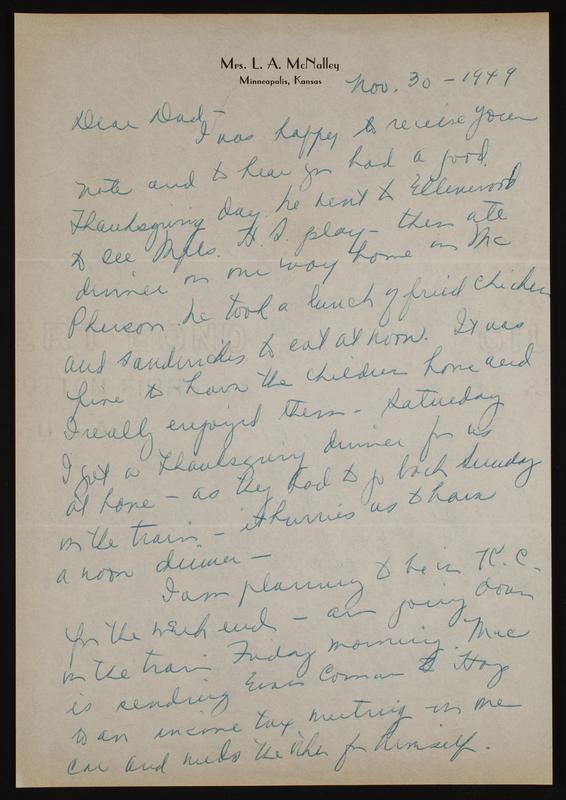 Mrs. L. A. McNalley
Minneapolis, Kansas
Nov. 30 - 1949
Dear Dad -
I was happy to receive your
note and to hear you had a good
Thanksgiving day. We went to Ellinwood
to see Mpls. H. S. play - then ate
dinner on our way home in Mc
Pherson. We took a lunch of fried chicken
and sandwiches to eat at noon. It was
fine to have the children home and
I really enjoyed them - Saturday
I got a Thanksgiving dinner for us
at home - as they had to go back Sunday
on the train - it hurries us to have
a noon dinner -
I am planning to be in K. C.
for the week end - am going down
on the train Friday morning. Mac
is sending to Hay
to an income tax meeting - in one
car and needs the other for himself.